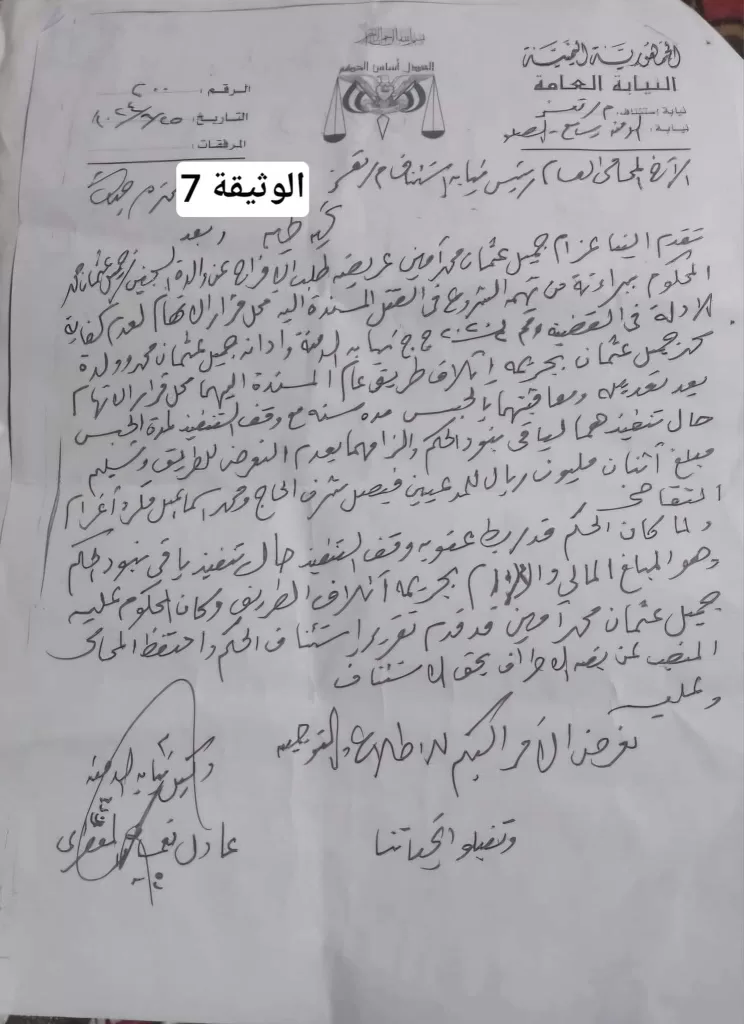 بسم الله الرحمن الرحيم
الجمهورية اليمنية
النيابة العامة
نيابة إستئناف: م/ تعز
نيابة:
العدل أساس الحكم
الرقم: ٢٠٠
التاريخ:
المرفقات:
الأخ المحامي العام رئيس نيابة استئناف م/ تعز
الوثيقة 7
تحية طيبة وبعد
تقدم الينا عزام جميل عثمان محمد أمين عريضة طلب الافراج عن والده السجين/ جميل عثمان محمد
المحكوم ببراءته من تهمة الشروع في القتل المسندة اليه محل قرار الاتهام لعدم كفاية
الادلة في القضية رقم ج ج نيابة وادانة جميل عثمان محمد وولده
جميل عثمان بجريمة إتلاف طريق عام المسندة اليهما محل قرار الاتهام
بعد تعديله ومعاقبتهما بالحبس مدة سنه مع وقف التنفيذ لمدة الحبس
حال تنفيذهما لباقي بنود الحكم والزامهما بعدم التعرض للطريق وتسليم
مبلغ أثنان مليون ريال للمدعيين فيصل شرف الحاج ومحمد اسماعيل أغرام
التقاضي
ولما كان الحكم قد ربط عقوبة وقف التنفيذ حال تنفيذ باقي بنود الحكم
وهو المبلغ المالي بجريمة أتلاف الطريق وكان المحكوم عليه
جميل عثمان محمد أمين قد قدم تقرير إستئناف الحكم واحتفظ المحامي
المنصب عن بقية الاطراف بحق الاستئناف
وعليه
نعرض الأمر اليكم للاطلاع والتوجيه
وتقبلو تحياتنا
وكيل نيابة
عادل